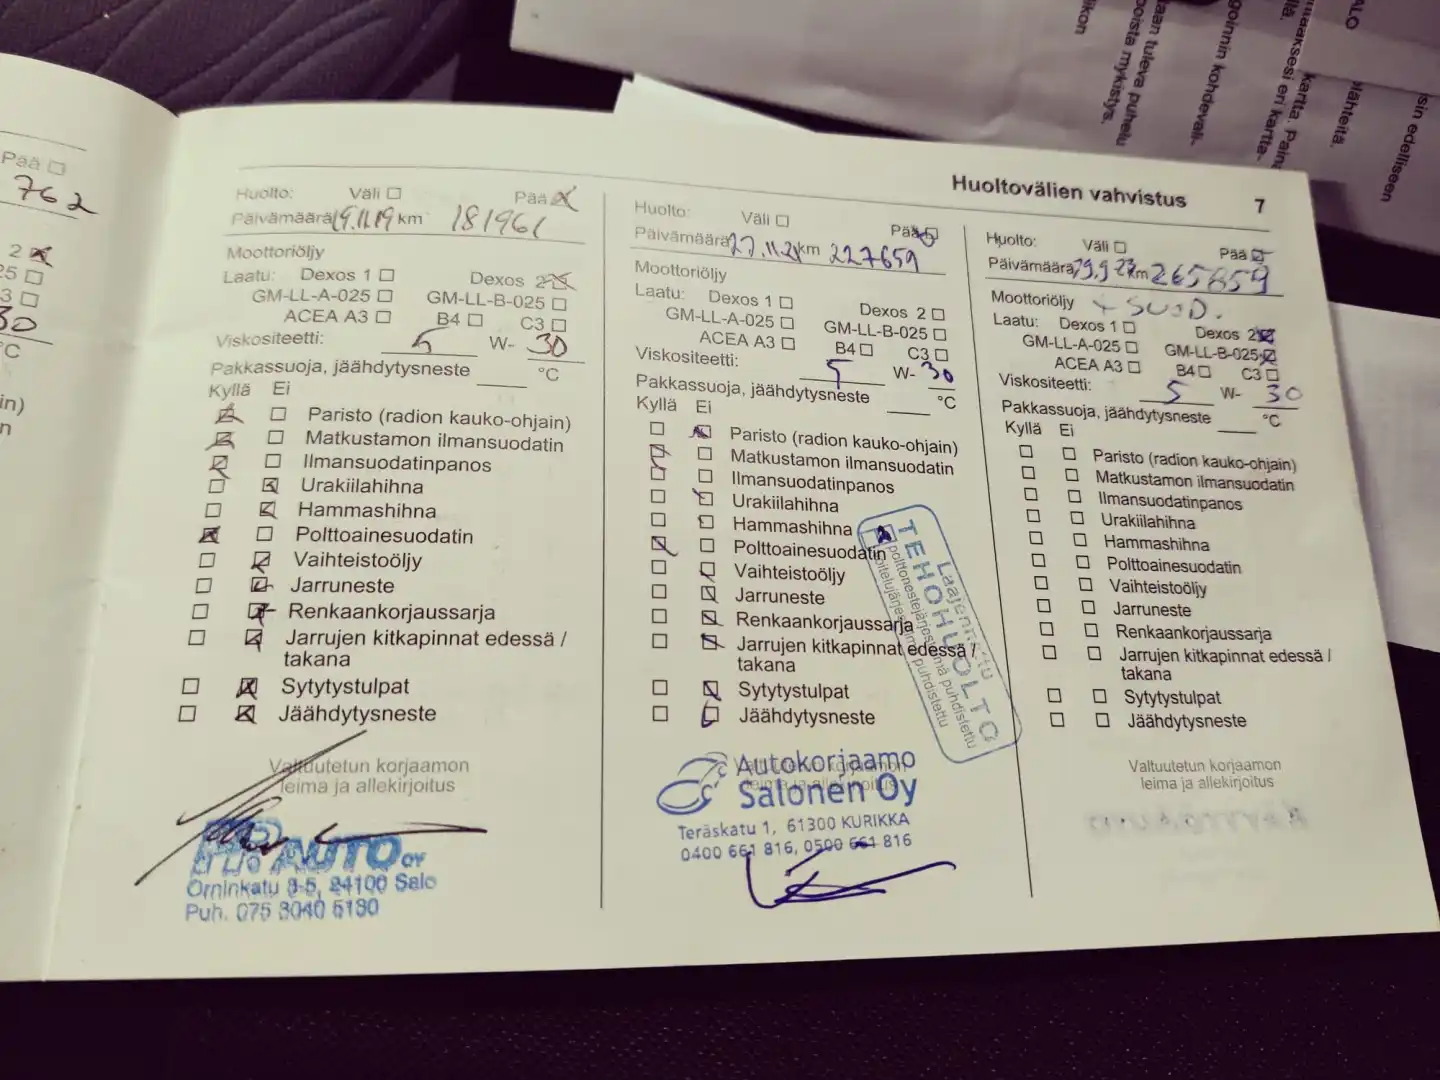 Pää
762
2
25
3
30
°C
in)
n
Huoltovälien vahvistus 7
Huolto: Väli Pää
Päivämäärä 19.11.19 km 181961
Moottoriöljy
Laatu: Dexos 1 Dexos 2
GM-LL-A-025 GM-LL-B-025
ACEA A3 B4 C3
Viskositeetti: 5 W- 30
Pakkassuoja, jäähdytysneste °C
Kyllä Ei
Paristo (radion kauko-ohjain)
Matkustamon ilmansuodatin
Ilmansuodatinpanos
Urakiilahihna
Hammashihna
Polttoainesuodatin
Vaihteistoöljy
Jarruneste
Renkaankorjaussarja
Jarrujen kitkapinnat edessä /
takana
Sytytystulpat
Jäähdytysneste
Valtuutetun korjaamon
leima ja allekirjoitus
AUTO OY
Orninkatu 3-5, 24100 Salo
Puh. 075 3040 5130
Huolto: Väli Pää
Päivämäärä 27.11.21 km 227659
Moottoriöljy
Laatu: Dexos 1 Dexos 2
GM-LL-A-025 GM-LL-B-025
ACEA A3 B4 C3
Viskositeetti: 5 W- 30
Pakkassuoja, jäähdytysneste °C
Kyllä Ei
Paristo (radion kauko-ohjain)
Matkustamon ilmansuodatin
Ilmansuodatinpanos
Urakiilahihna
Hammashihna
Polttoainesuodatin
Vaihteistoöljy
Jarruneste
Renkaankorjaussarja
Jarrujen kitkapinnat edessä /
takana
Sytytystulpat
Jäähdytysneste
Laajennettu
TEHOHUOLTO
polttonestejärjestelmä puhdistettu
voitelujärjestelmä puhdistettu
Autokorjaamo
Salonen Oy
Teräskatu 1, 61300 KURIKKA
0400 661 816, 0500 661 816
Huolto: Väli Pää
Päivämäärä 19.9.23 km 265859
Moottoriöljy + SUOD.
Laatu: Dexos 1 Dexos 2
GM-LL-A-025 GM-LL-B-025
ACEA A3 B4 C3
Viskositeetti: 5 W- 30
Pakkassuoja, jäähdytysneste °C
Kyllä Ei
Paristo (radion kauko-ohjain)
Matkustamon ilmansuodatin
Ilmansuodatinpanos
Urakiilahihna
Hammashihna
Polttoainesuodatin
Vaihteistoöljy
Jarruneste
Renkaankorjaussarja
Jarrujen kitkapinnat edessä /
takana
Sytytystulpat
Jäähdytysneste
Valtuutetun korjaamon
leima ja allekirjoitus
sin edelliseen
lähteitä.
kartta. Pain
maaksesi eri kartta-
goinnin kohdevali-
aan tuleva puhelu
poista mykistys.